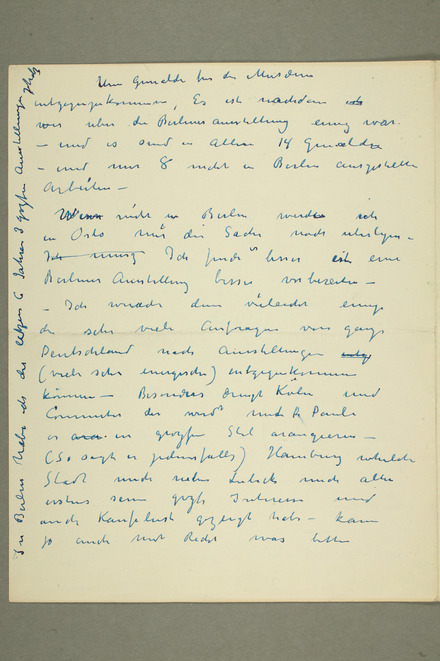 Um Gemälde für die Museen
entgegenzukommen, Es ist nachdem ich
war über die Berliner ausstellung einig war.
– und es sind in allem 14 Gemälde
– und nur 8 nicht in Berlin ausgestellte
Arbeiten –
Wenn nicht in Berlin werde ich
in Oslo mir die Sache noch überlegen –
Ich finde es besser eine
Berliner Ausstellung besser vorbereiten –
– Ich würde dann vieleicht einige
der sehr viele Anfragen von ganz
Deutschland nach Ausstellungen
(viele sehr energische) entgegenkommen
können – Besonders drängt Köln und
Commeter der will und Dr Pauli
es in großen Stil arangieren –
(So sagt er jedenfalls) Hamburg
Stadt und neben Lübeck und alle
erstes sein große Interesse und
auch Kauflust gezeigt hat – kann
ja auch mit Recht was bitten
In Berlin habe ich die letzten 6 Jahren 3 großen Ausstellungen gehabt